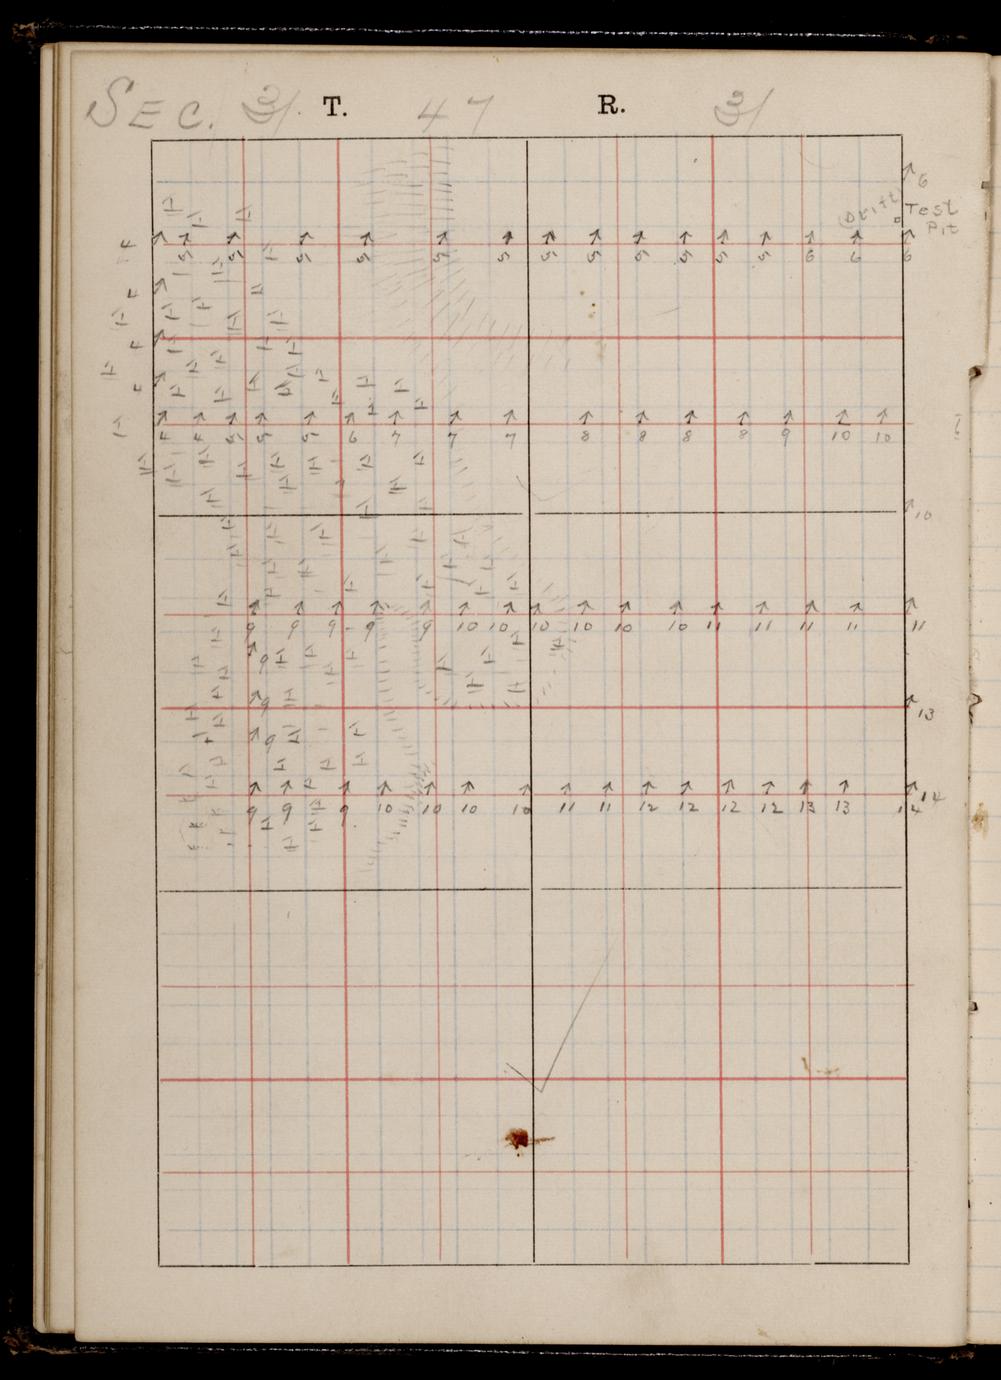 SEC. 31. T. 47 R. 31
6
(Drift) Test
Pit
4 5 5 5 5 5 5 5 5 5 5 5 5 6 6 6
4
4
4
4 4 5 5 5 6 7 7 7 8 8 8 8 9 10 10
10
9 9 9 9 9 10 10 10 10 10 10 11 11 11 11 11
9
9 13
9
14
9 9 9 10 10 10 10 11 11 12 12 12 12 13 13 14